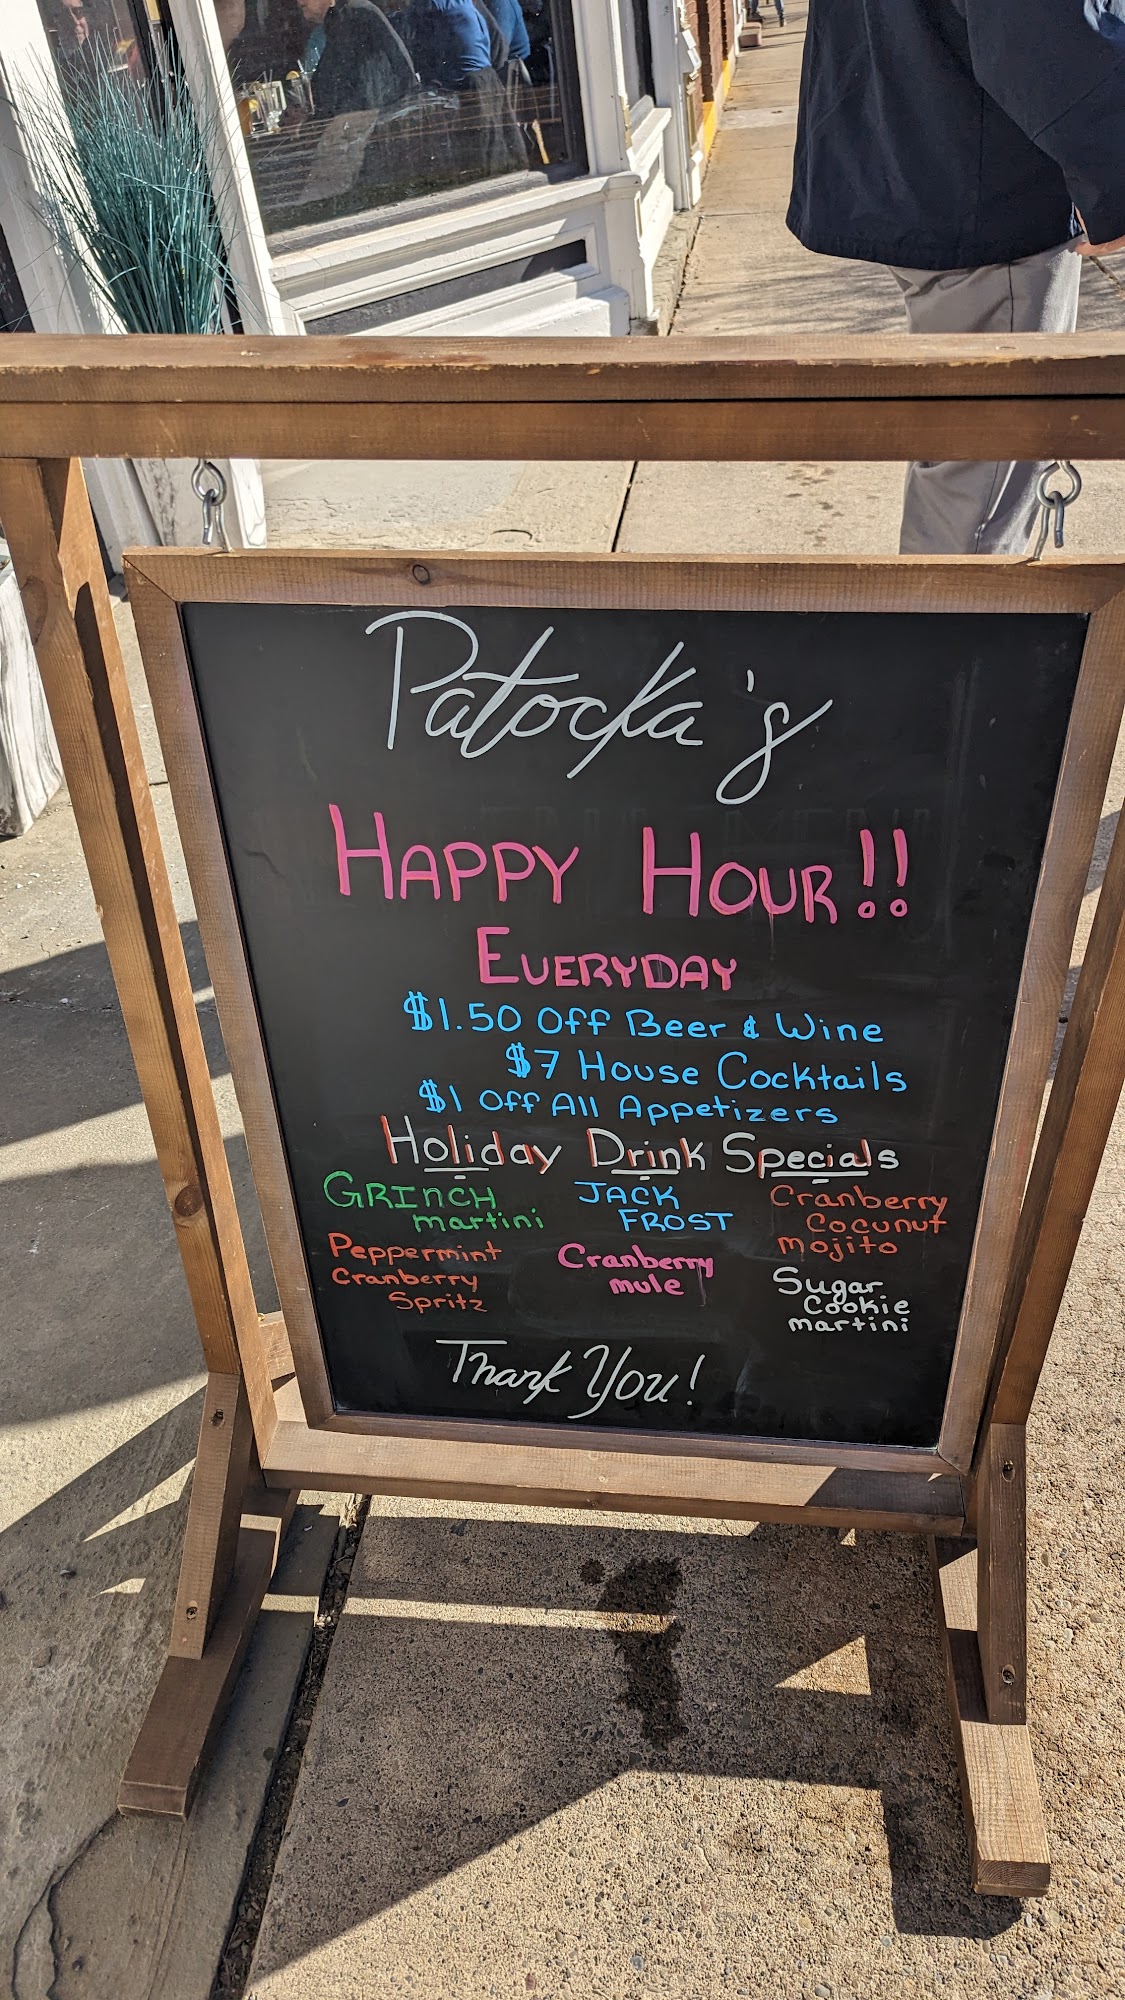 Patocka's
HAPPY HOUR!!
EVERYDAY
$1.50 Off Beer & Wine
$7 House Cocktails
$1 Off All Appetizers
Holiday Drink Specials
GRINCH
martini
JACK
FROST
Cranberry
Cocunut
mojito
Peppermint
Cranberry
Spritz
Cranberry
mule
Sugar
Cookie
martini
Thank You!